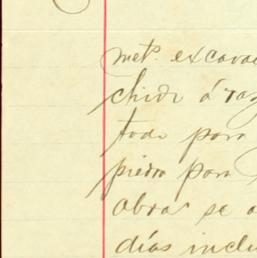 met.º excava
chidr á raz
todo para
piedra para
obras se a
días inclu